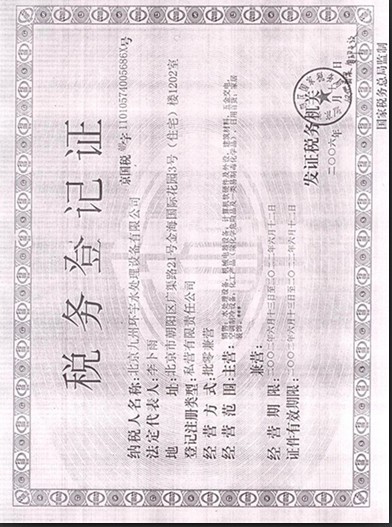 税务登记证
京国税 字 110105740056868X号
纳税人名称:北京九州环宇水处理设备有限公司
法定代表人:李卜雨
地 址:北京市朝阳区广渠路21号金海国际花园3号(住宅)楼1202室
登记注册类型:私营有限责任公司
经营方式:批零兼营
经营范围:主营:
销售:水处理设备、机械电器设备、计算机软硬件及外设、建筑材料、五金交电、
兼营:
经营期限:二〇〇二年六月十三日至二〇二二年六月十二日
证件有效期限:二〇〇二年六月十三日至二〇二二年六月十二日
发证税务机关
二〇〇六年 月 日
国家税务总局监制